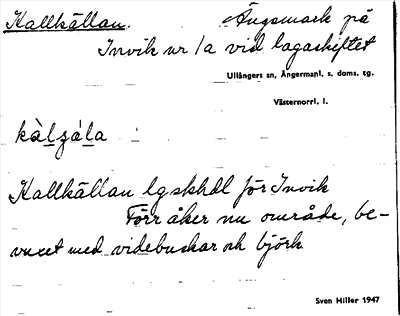 Kallkällan. Ängsmark på
Invik nr 1a vid lagaskiftet
Ullångers sn, Ångermanl. s. doms. tg.
Västernorrl. l.
kàlzála
Kallkällan lgskhdl för Invik
Förr åker nu område, be-
vuxet med videbuskar och björk.
Sven Hiller 1947